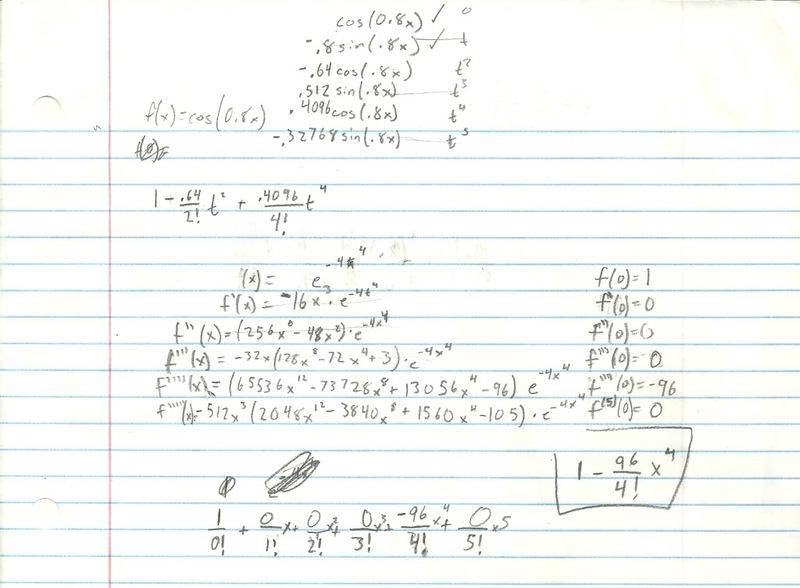 cos(0.8x) ✓ 0
-.8sin(.8x) ✓ t
-.64cos(.8x) t²
.512sin(.8x) t³
f(x)=cos(0.8x) .4096cos(.8x) t⁴
-.32768sin(.8x) t⁵
1 - .64/2! t² + .4096/4! t⁴
f(x) = e^-4x⁴
f'(x) = -16x³ · e^-4x⁴
f''(x) = (256x⁶ - 48x²) · e^-4x⁴
f'''(x) = -32x(128x⁸ - 72x⁴ + 3) · e^-4x⁴
f''''(x) = (65536x¹² - 73728x⁸ + 13056x⁴ - 96) e^-4x⁴
f'''''(x) = -512x³(2048x¹² - 3840x⁸ + 1560x⁴ - 105) · e^-4x⁴
f(0) = 1
f'(0) = 0
f''(0) = 0
f'''(0) = 0
f''''(0) = -96
f⁽⁵⁾(0) = 0
1 - 96/4! x⁴
1/0! + 0/1! x + 0/2! x² + 0/3! x³ + -96/4! x⁴ + 0/5! x5